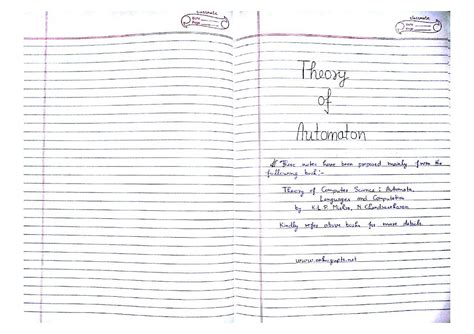 classmate
Date
Page
classmate
Date
Page
Theory
of
Automaton
# These notes have been prepared mainly from the
following book:-
Theory of Computer Science: Automata,
Languages and Computation
by K.L.P. Mishra, N. Chandrasekaran
Kindly refer above books for more details